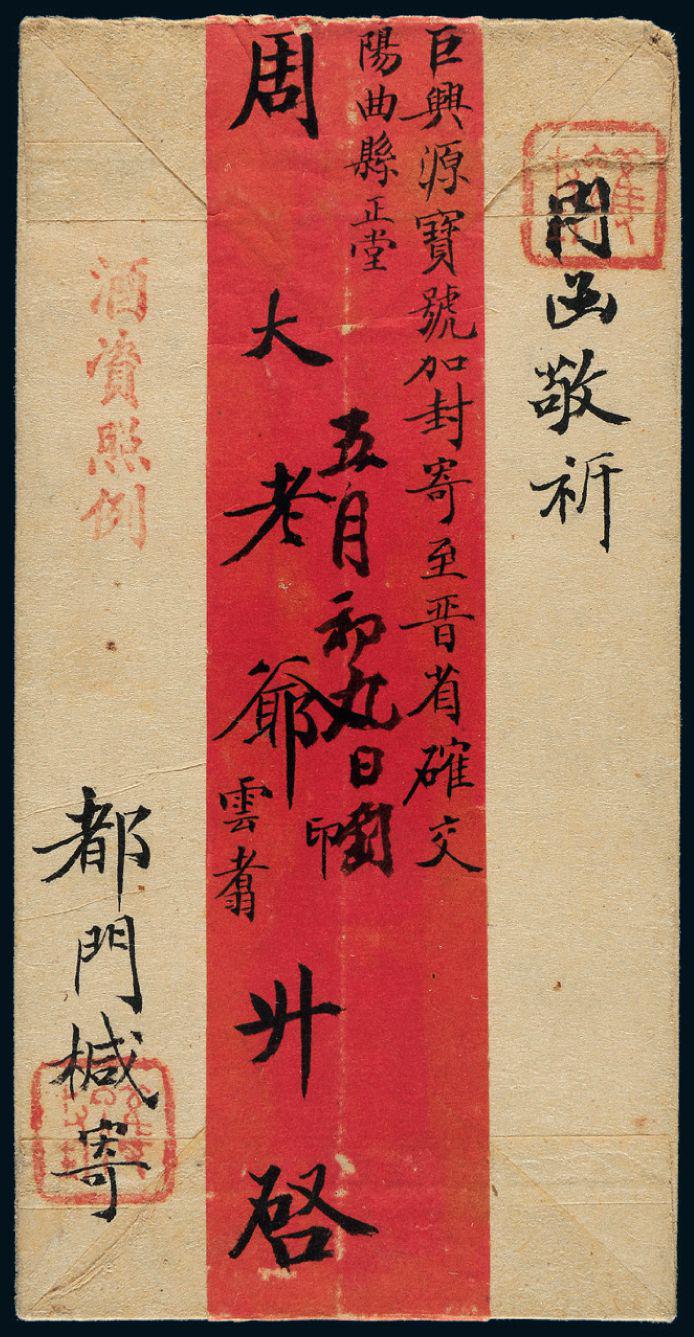 内函敬祈
巨興源寶號加封寄至晋省確交
陽曲縣正堂
五月初九日
周大老爺
印
雲翥
升啓
酒資照例
都門椷寄